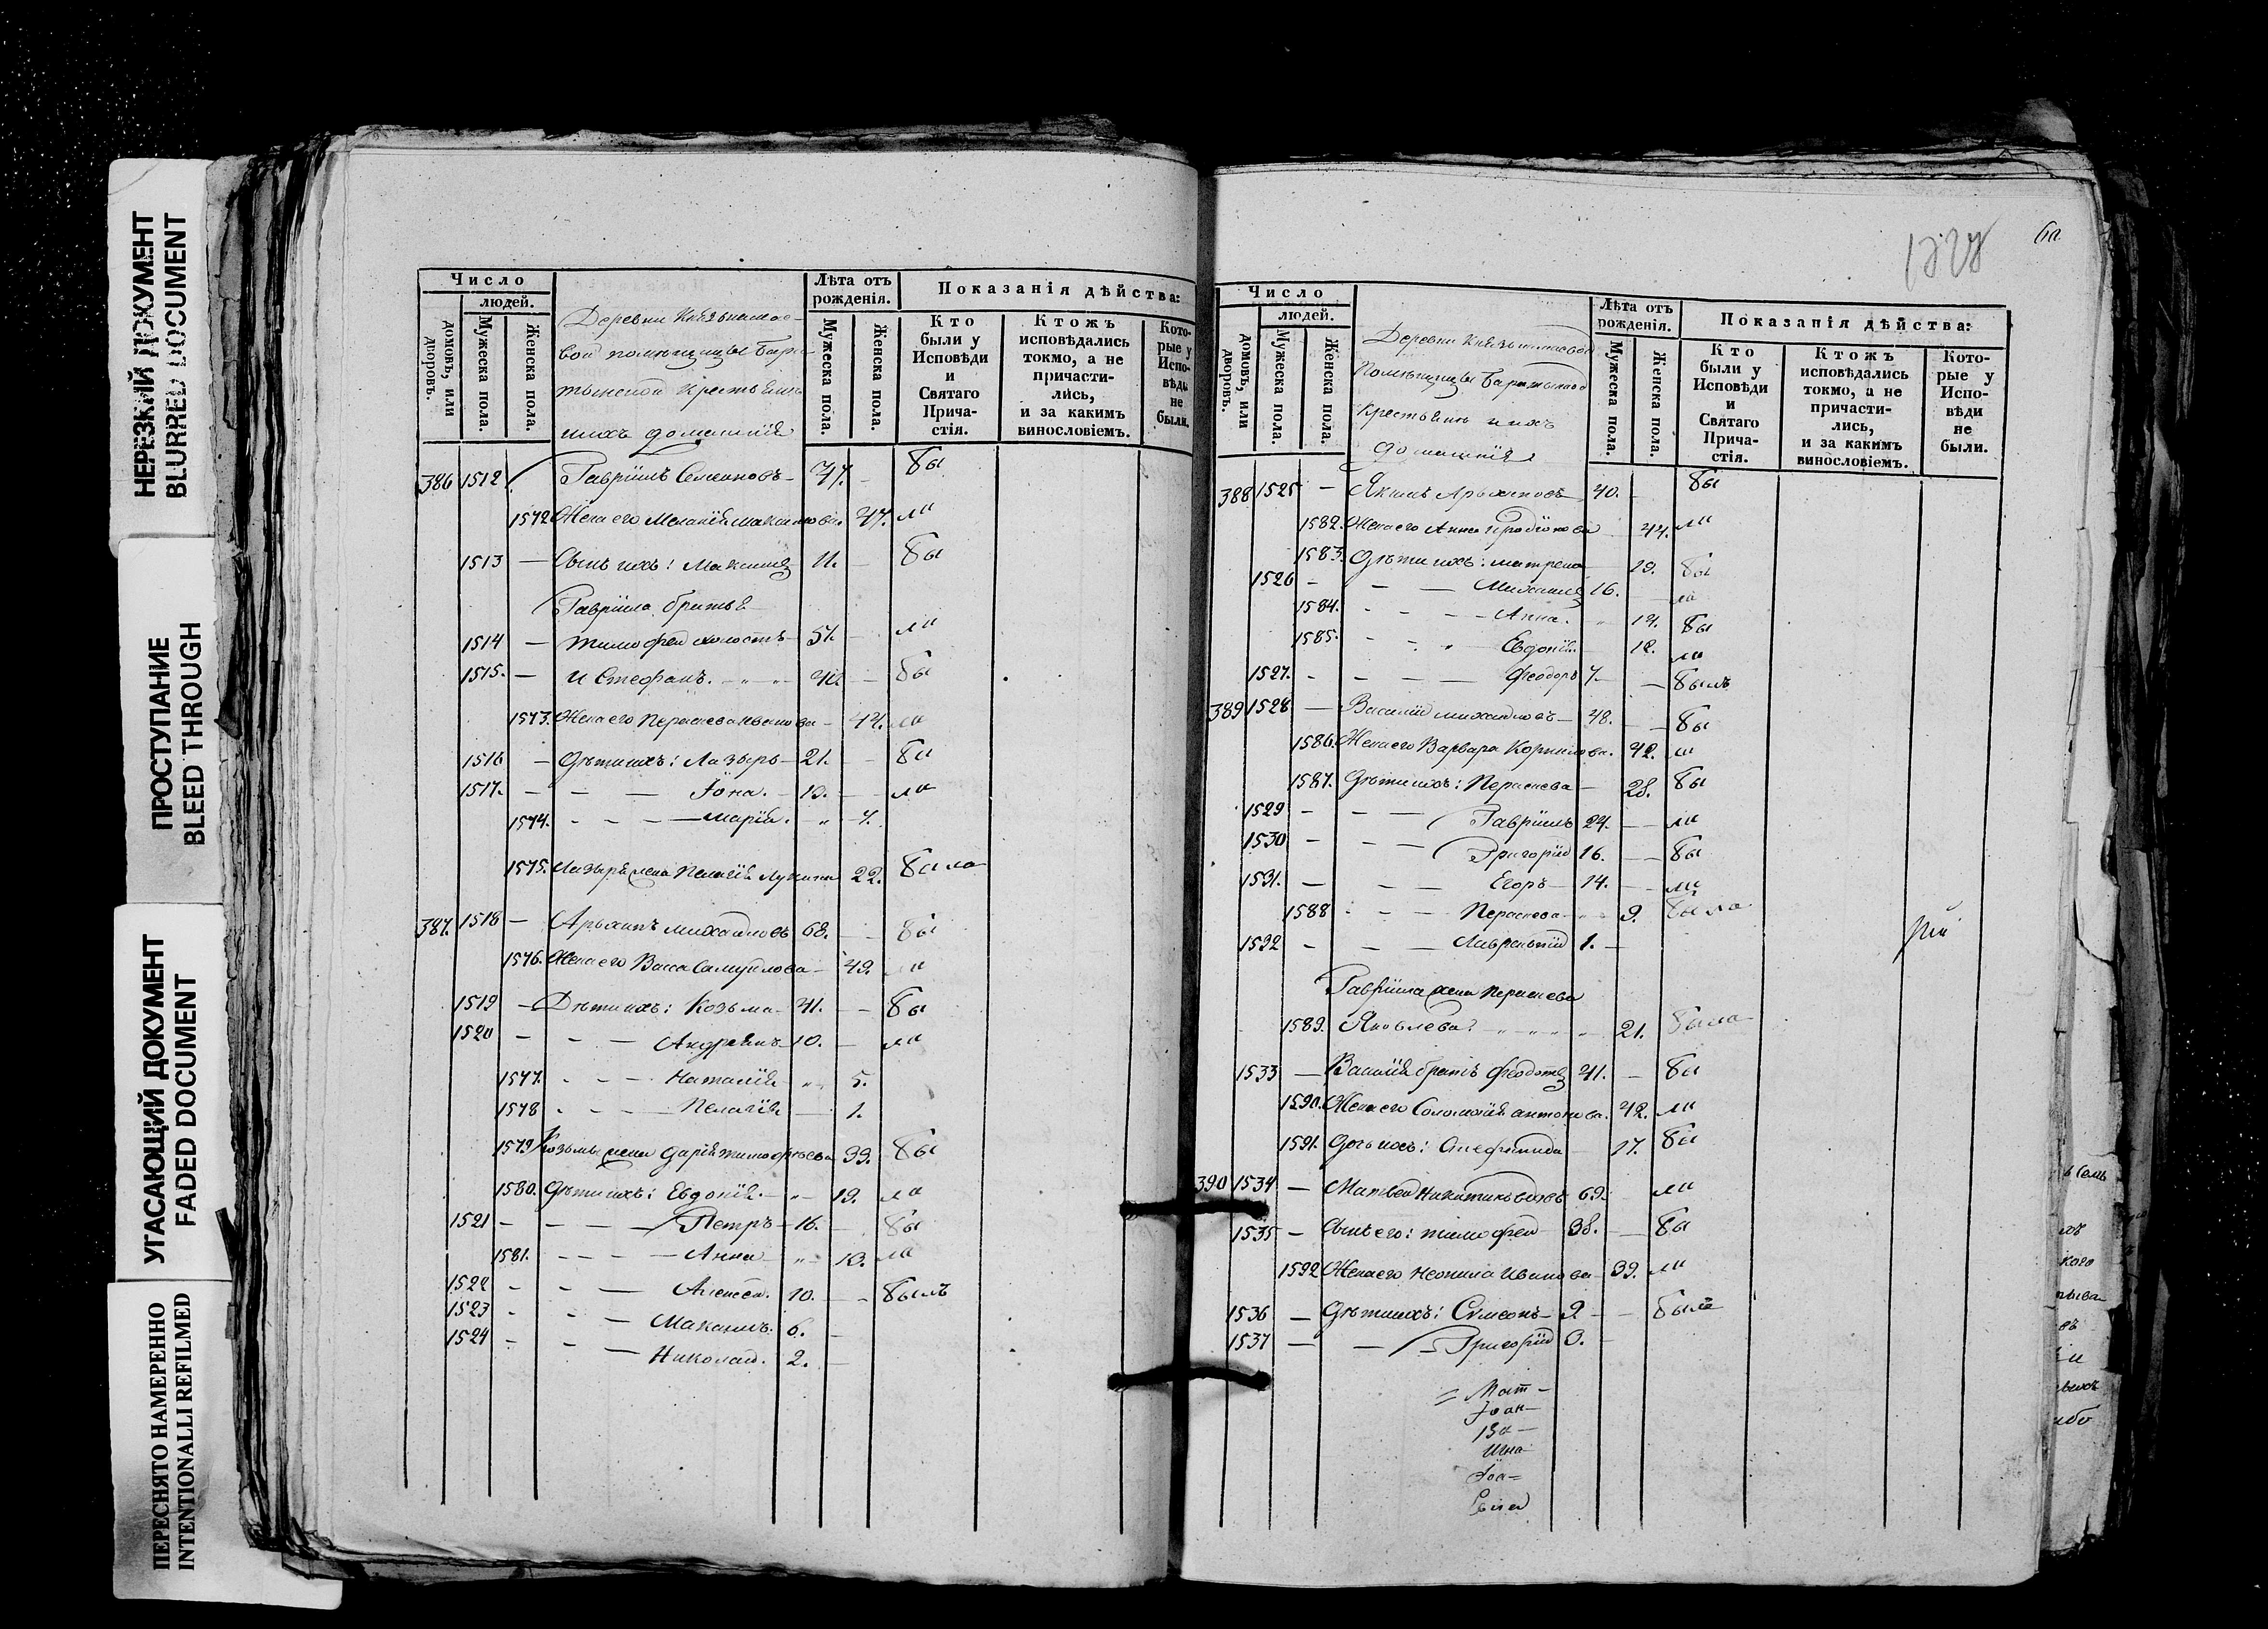 НЕРЕЗКИЙ ДОКУМЕНТ
BLURRED DOCUMENT
ПРОСТУПАНИЕ
BLEED THROUGH
УГАСАЮЩИЙ ДОКУМЕНТ
FADED DOCUMENT
ПЕРЕСНЯТО НАМЕРЕННО
INTENTIONALLI REFILMED
Число
людей.
домовъ, или дворовъ.
Мужеска пола.
Женска пола.
Деревни
помѣщицы
крестьяне
ихъ домашнія
Лѣта отъ рожденія.
Мужеска пола.
Женска пола.
Показанія дѣйства:
Кто были у Исповѣди и Святаго Причастія.
Ктожъ исповѣдались токмо, а не причастились, и за какимъ винословіемъ.
Которые у Исповѣди не были.
386 1512 Гавріилъ Семеновъ 47. бы
1572 Жена его Меланія Максимова 47. ли
1513 Сынъ ихъ: Максимъ 11. бы
Гавріила братья
1514 Тимофей холостъ 51. ли
1515. И Стефанъ. бы
1573. Жена его Параскева Иванова 42. ли
1516 Дѣти ихъ: Лазарь 21. бы
1517. Іона. 19. ли
1574. Марія. 4.
1575. Лазаря жена Пелагія 22. была
387. 1518 Архипъ Михайловъ 68. бы
1576. Жена его Васса Самуилова 49. ли
1519 Дѣти ихъ: Козьма 41. бы
1520 Андреянъ 10. ли
1577. Наталія 5.
1578 Пелагія 1.
1579 Козьмы жена Дарія Тимофѣева 39. бы
1580. Дѣти ихъ: Евдокія. 19. ли
1521 Петръ 16. бы
1581. Анна 13. ла
1522 Алексѣй. 10. былъ
1523 Максимъ. 6.
1524 Николай. 2.
Число
людей.
домовъ, или дворовъ.
Мужеска пола.
Женска пола.
Деревни
Помѣщицы
Крестьяне и ихъ
домашнія
Лѣта отъ рожденія.
Мужеска пола.
Женска пола.
Показанія дѣйства:
Кто были у Исповѣди и Святаго Причастія.
Ктожъ исповѣдались токмо, а не причастились, и за какимъ винословіемъ.
Которые у Исповѣди не были.
388 1525 Якимъ Архиповъ 40. бы
1582. Жена его Анна 44. ли
1583. Дѣти ихъ: Матрена 19. бы
1526 Михаилъ 16. ли
1584. Анна. 14. бы
1585. Евдокія. 12. ли
1527. Феодоръ 7. былъ
389 1528 Василій Михайловъ 48. бы
1586. Жена его Варвара Корнилова. 42. ли
1587. Дѣти ихъ: Параскева 28. бы
1529 Гавріилъ 24. ли
1530 Григорій 16. бы
1531. Егоръ 14. ли
1588 Параскева 9. была
1532 Лаврентій 1.
Гавріила жена Параскева
1589. Яковлева 21. была
1533 Василія братъ Феодотъ 41. бы
1590. Жена его Соломонія Антонова. 42. ли
1591. Дочь ихъ: 17. бы
390 1534 Матвей 69. ли
1535 Сынъ его: Тимофей 38. бы
1592 Жена его Неонила Иванова 39. ли
1536 Дѣти ихъ: Сѵмеонъ 9 былъ
1537 Григорій 0.
Мат
Іоан